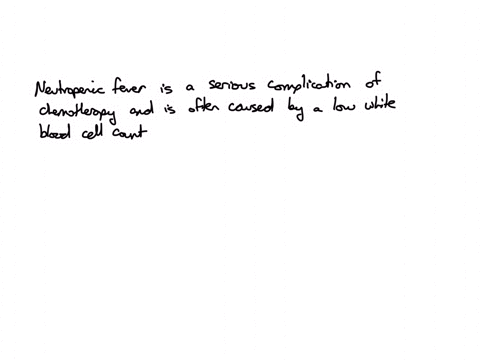 Neutropenic fever is a serious complication of
chemotherapy and is often caused by a low white
blood cell count